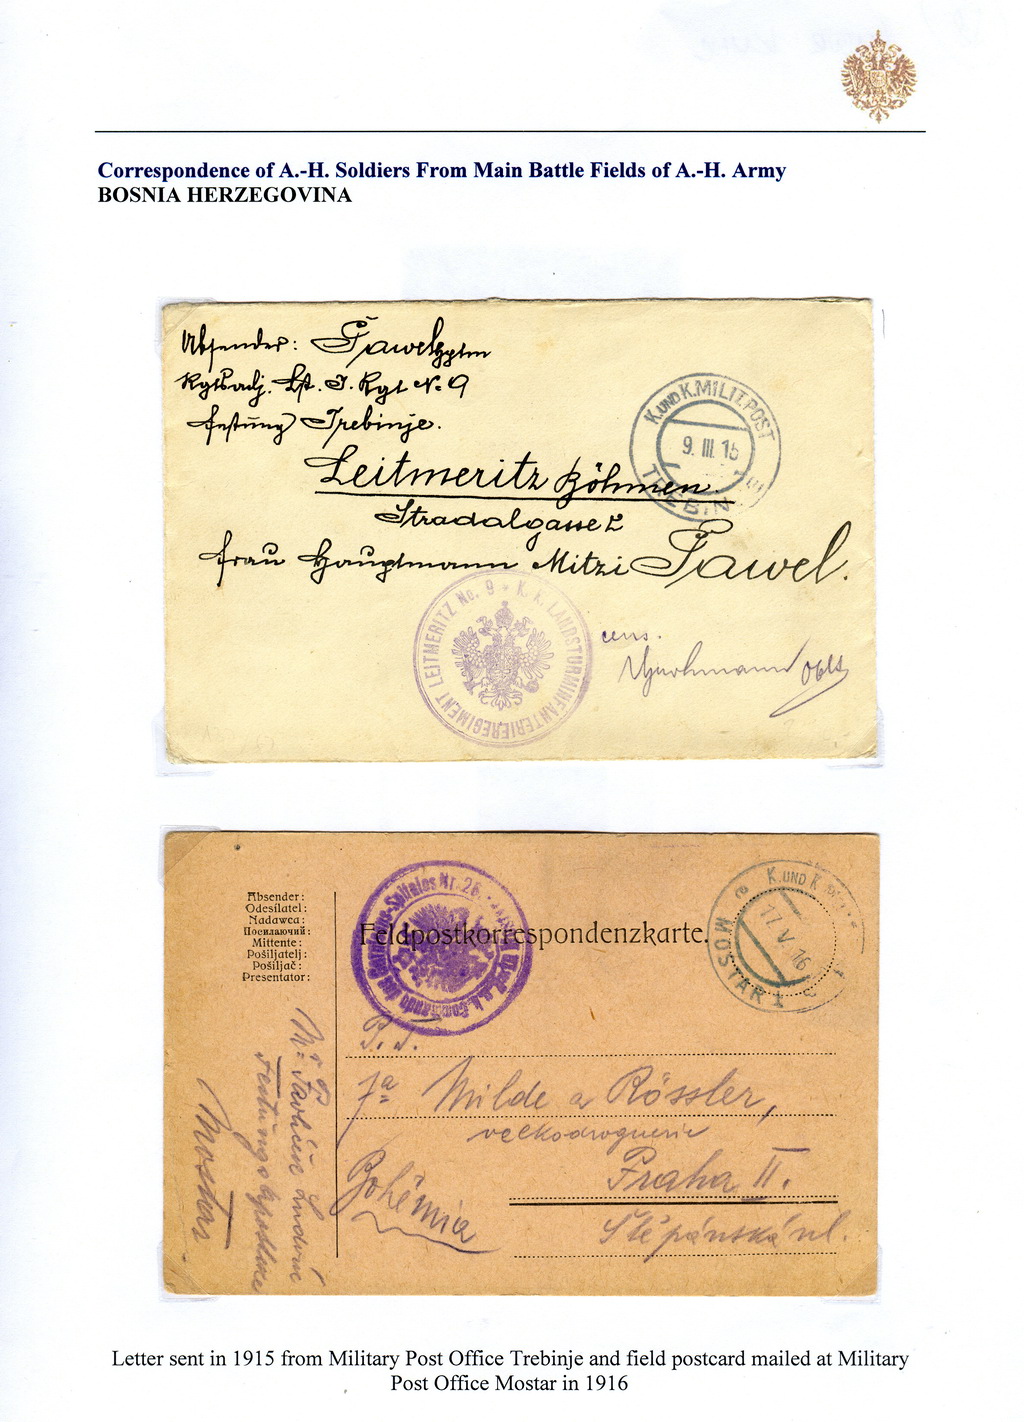 Correspondence of A.-H. Soldiers From Main Battle Fields of A.-H. Army
BOSNIA HERZEGOVINA
Absender: Pawel Hptm
Rgtsadj. Lst. I. Rgt No 9
Festung Trebinje.
Leitmeritz Böhmen.
Stradalgasse 2
Frau Hauptmann Mitzi Pawel.
K.UND K.MILIT.POST
9. III. 15
TREBIN
K. K. LANDSTURMINFANTERIEREGIMENT LEITMERITZ No. 9
cens.
Oblt
Absender:
Odesílatel:
Nadawca:
Посилаючий:
Mittente:
Pošiljatelj:
Pošiljač:
Presentator:
Feldpostkorrespondenzkarte.
Nr. 26
K. UND K.
17. V. 16
MOSTAR 1
P. T.
Fa Milde a Rössler,
velkodroguerie
Praha II.
Štěpánská ul.
Bohêmia
Ludvík
Mostar
Letter sent in 1915 from Military Post Office Trebinje and field postcard mailed at Military
Post Office Mostar in 1916